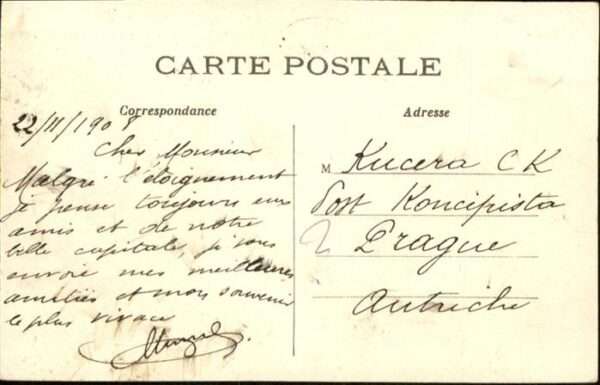 CARTE POSTALE
Correspondance
22/11/1908
Cher Monsieur
Malgré l'éloignement
je pense toujours aux
amis et de notre
belle capitale, je vous
envoie mes meilleures
amitiés et mon souvenir
le plus vivace
Adresse
M Kucera C K
Post Koncipista
Prague
Autriche